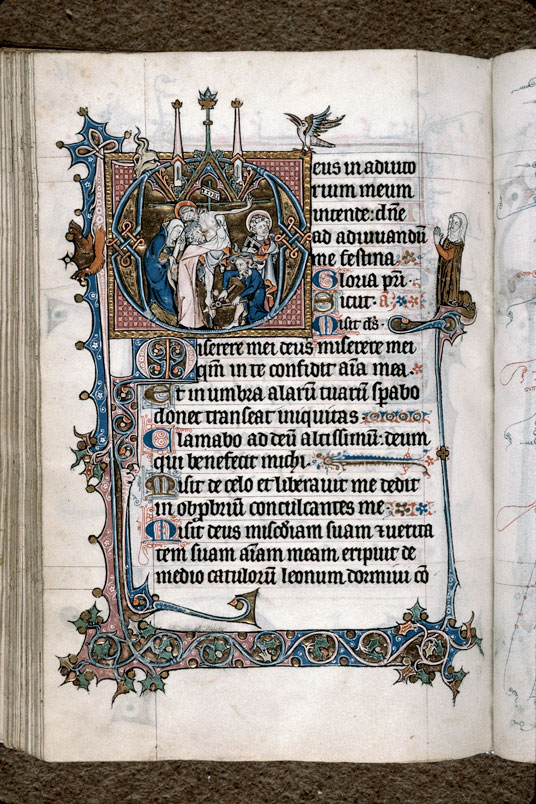 Deus in adiuto
rium meum
intende: dn̄e
ad adiuuandū
me festina
Gloria pr̄i
Sicut. a
Misit d̄s.
Miserere mei deus miserere mei
qm̄ in te confidit aīa mea.
Et in umbra alarū tuarū sp̄abo
donec transeat iniquitas
Clamabo ad deū altissimū: deum
qui benefecit michi.
Misit de celo et liberauit me dedit
in obp̄briū conculcantes me.
Misit deus misc̄diam suam ⁊ uerita
tem suam aīam meam. eripuit de
medio catulorū leonum. dormiui cō